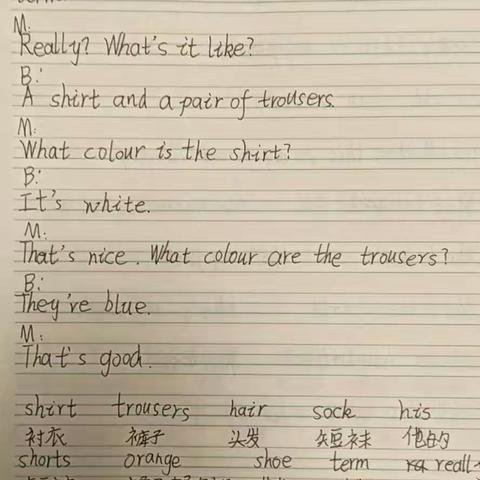 M:
Really? What's it like?
B:
A shirt and a pair of trousers.
M:
What colour is the shirt?
B:
It's white.
M:
That's nice. What colour are the trousers?
B:
They're blue.
M:
That's good.
shirt trousers hair sock his
衬衣 裤子 头发 短袜 他的
shorts orange shoe term